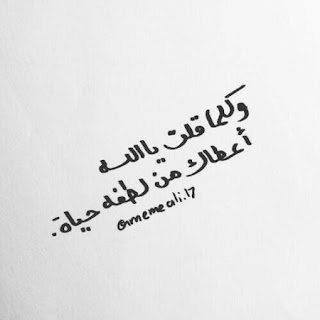 وكلما قلت يا الله
أعطاك من لطفه حياة.
@memeali.17